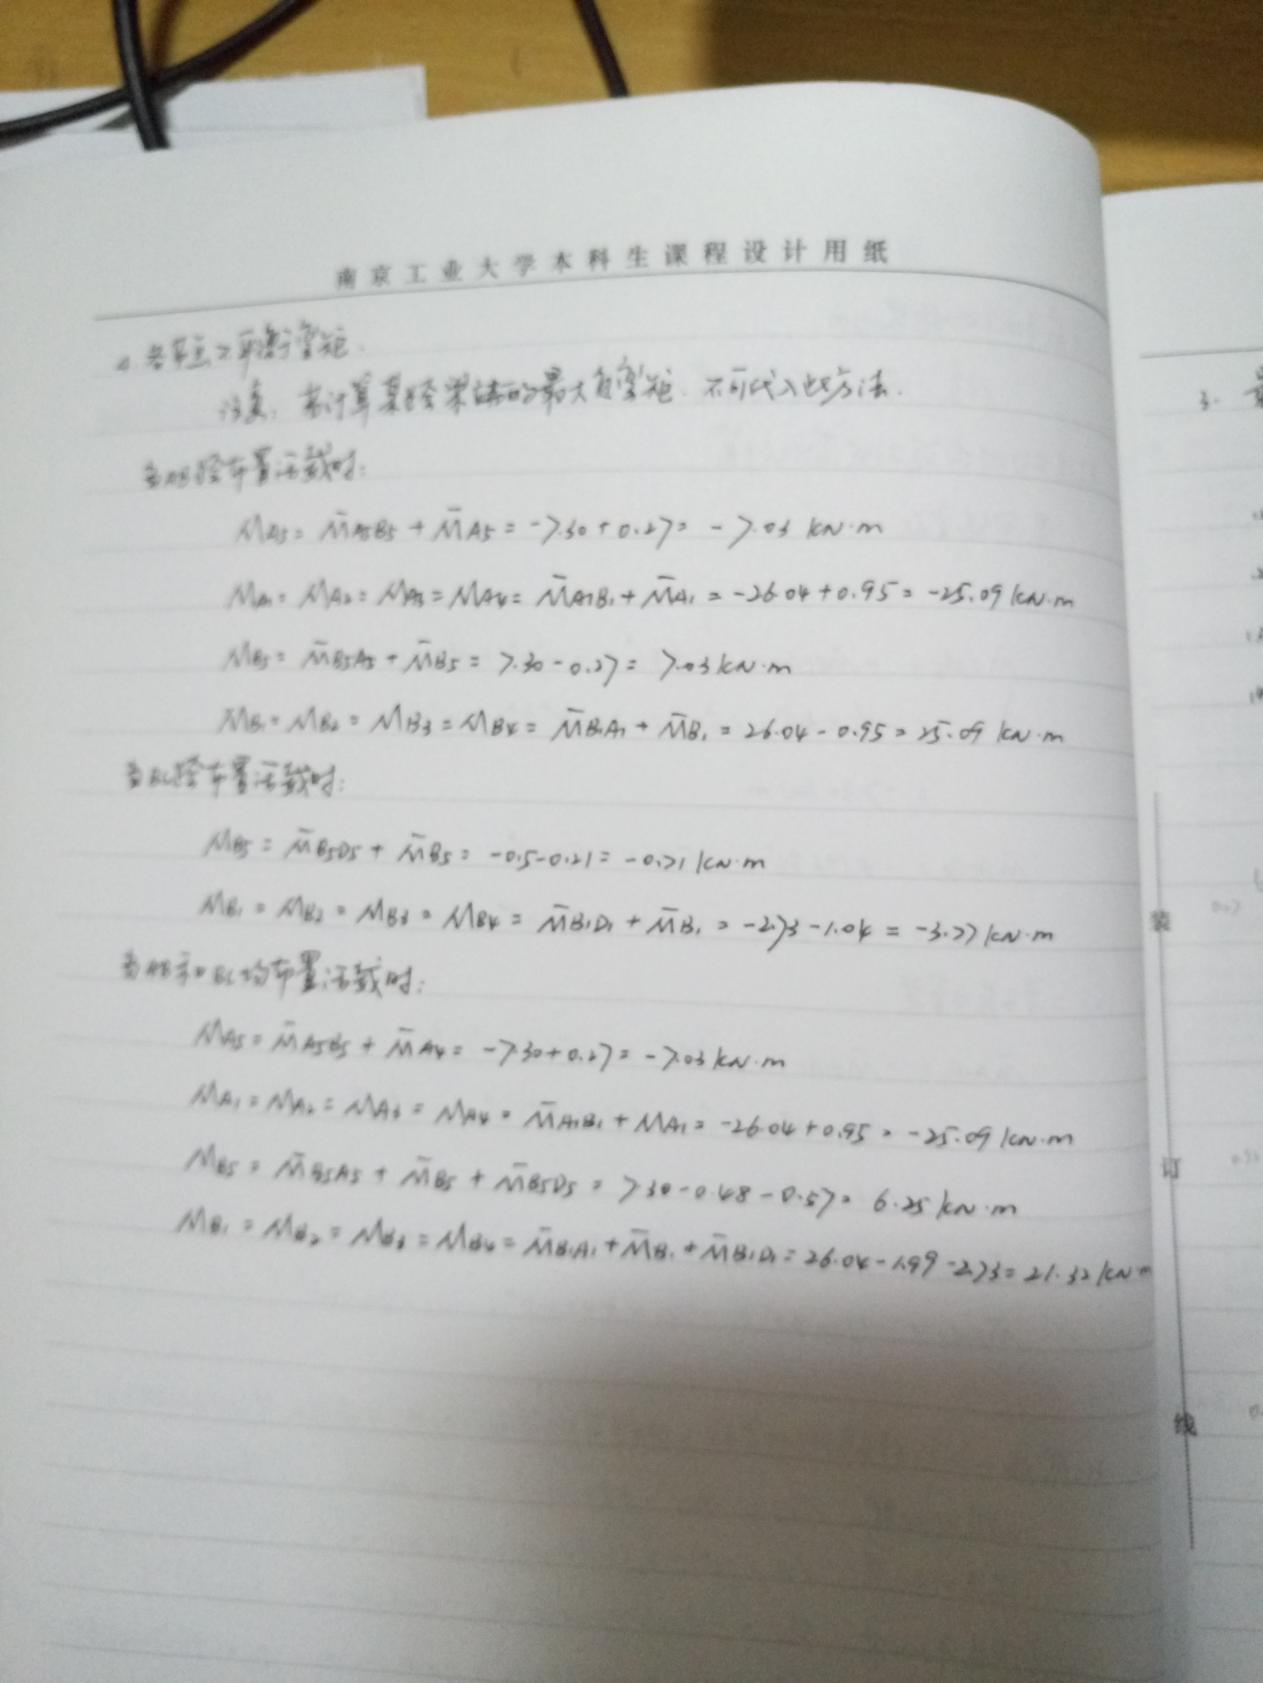 南京工业大学本科生课程设计用纸
4.各节点不平衡弯矩.
注意:若计算某跨梁端的最大负弯矩.不可代入此方法.
当AB跨布置活载时:
MA5= M̄A5B5 + M̄A5 = -7.30+0.27= -7.03 kN·m
MA1= MA2= MA3= MA4= M̄A1B1+ M̄A1 = -26.04+0.95= -25.09 kN·m
MB5= M̄B5A5 + M̄B5 = 7.30-0.27= 7.03 kN·m
MB1= MB2= MB3= MB4= M̄B1A1 + M̄B1 = 26.04-0.95= 25.09 kN·m
当BC跨布置活载时:
MB5= M̄B5D5 + M̄B5= -0.5-0.21= -0.71 kN·m
MB1= MB2= MB3= MB4= M̄B1D1 + M̄B1 = -2.73-1.04 = -3.77 kN·m
当AB和BC均布置活载时:
MA5= M̄A5B5 + M̄A4= -7.30+0.27= -7.03 kN·m
MA1= MA2= MA3= MA4= M̄A1B1 + MA1= -26.04+0.95= -25.09 kN·m
MB5= M̄B5A5 + M̄B5 + M̄B5D5= 7.30-0.48-0.57= 6.25 kN·m
MB1= MB2= MB3= MB4= M̄B1A1+M̄B1+M̄B1D1= 26.04-1.99-2.73= 21.32 kN·m
3.
装
订
线